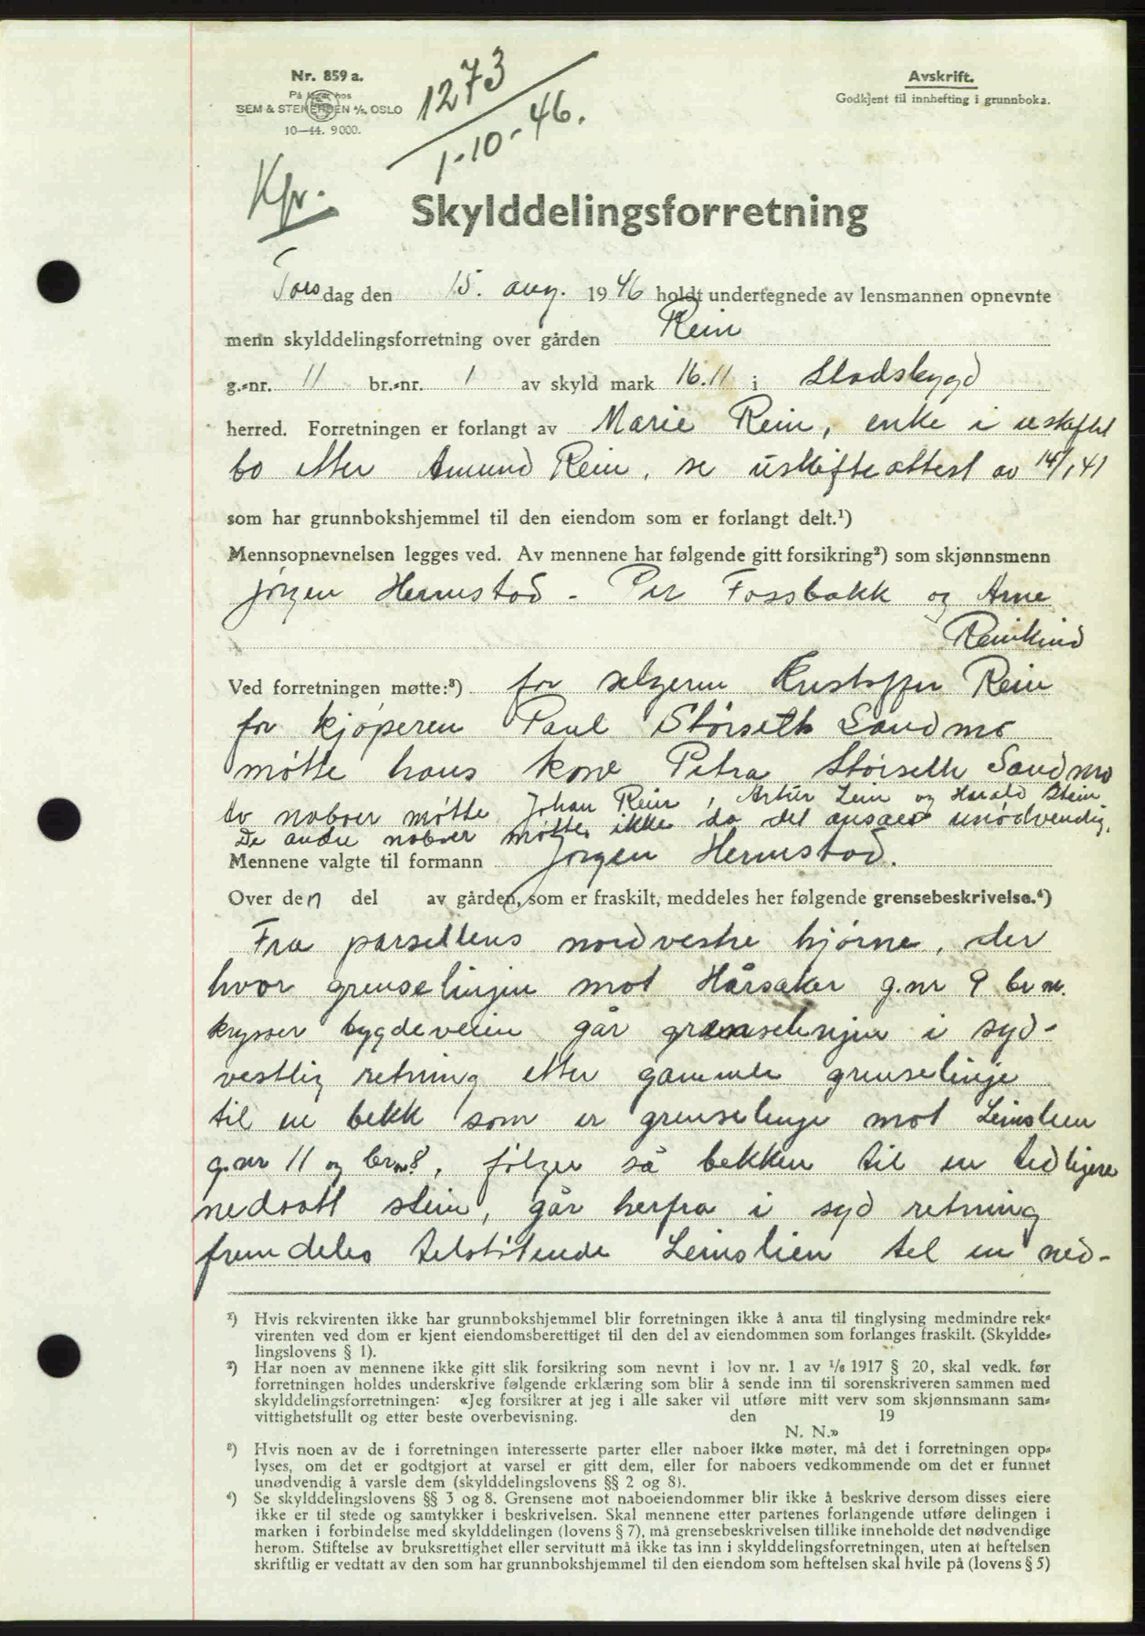 Nr. 859 a.
På lager hos
SEM & STENERSEN A/S, OSLO
10—44. 9000.
1273
1-10-46.
Avskrift.
Godkjent til innhefting i grunnboka.
Kfr.
Skylddelingsforretning
Torsdag den 15. aug. 1946 holdt undertegnede av lensmannen opnevnte
menn skylddelingsforretning over gården Rein
g.-nr. 11 br.-nr. 1 av skyld mark 16.11 i Stadsbygd
herred. Forretningen er forlangt av Marie Rein, enke i uskiftet
bo etter Amund Rein, se uskifteattest av 14/1 41
som har grunnbokshjemmel til den eiendom som er forlangt delt.¹)
Mennsopnevnelsen legges ved. Av mennene har følgende gitt forsikring²) som skjønnsmenn
Jørgen Hermstad - Per Fossbakk og Arne
Reinkind
Ved forretningen møtte:³) for selgeren Kristoffer Rein
for kjøperen Paul Størseth Sandmo
møtte hans kone Petra Størseth Sandmo
Av naboer møtte Johan Rein, Artur Lein og Harald Stein
De andre naboer møtte ikke da det ansaes unødvendig.
Mennene valgte til formann Jørgen Hermstad.
Over den del av gården, som er fraskilt, meddeles her følgende grensebeskrivelse.⁴)
Fra parsellens nordvestre hjørne, der
hvor grenselinjen mot Hårsaker g.nr 9 br nr.
krysser bygdeveien går grenselinjen i syd-
vestlig retning etter gammel grenselinje
til en bekk som er grenselinje mot Leinslien
g.nr 11 og br.nr 8, følger så bekken til en tidligere
nedsatt stein, går herfra i syd retning
fremdeles tilstøtende Leinslien til en ned-
¹) Hvis rekvirenten ikke har grunnbokshjemmel blir forretningen ikke å anta til tinglysing medmindre rek-
virenten ved dom er kjent eiendomsberettiget til den del av eiendommen som forlanges fraskilt. (Skyldde-
lingslovens § 1).
²) Har noen av mennene ikke gitt slik forsikring som nevnt i lov nr. 1 av ¹/₈ 1917 § 20, skal vedk. før
forretningen holdes underskrive følgende erklæring som blir å sende inn til sorenskriveren sammen med
skylddelingsforretningen: «Jeg forsikrer at jeg i alle saker vil utføre mitt verv som skjønnsmann sam-
vittighetsfullt og etter beste overbevisning. den 19
N. N.»
³) Hvis noen av de i forretningen interesserte parter eller naboer ikke møter, må det i forretningen opp-
lyses, om det er godtgjort at varsel er gitt dem, eller for naboers vedkommende om det er funnet
unødvendig å varsle dem (skylddelingslovens §§ 2 og 8).
⁴) Se skylddelingslovens §§ 3 og 8. Grensene mot naboeiendommer blir ikke å beskrive dersom disses eiere
ikke er til stede og samtykker i beskrivelsen. Skal mennene etter partenes forlangende utføre delingen i
marken i forbindelse med skylddelingen (lovens § 7), må grensebeskrivelsen tillike inneholde det nødvendige
herom. Stiftelse av bruksrettighet eller servitutt må ikke tas inn i skylddelingsforretningen, uten at heftelsen
skriftlig er vedtatt av den som har grunnbokshjemmel til den eiendom som heftelsen skal hvile på (lovens § 5)